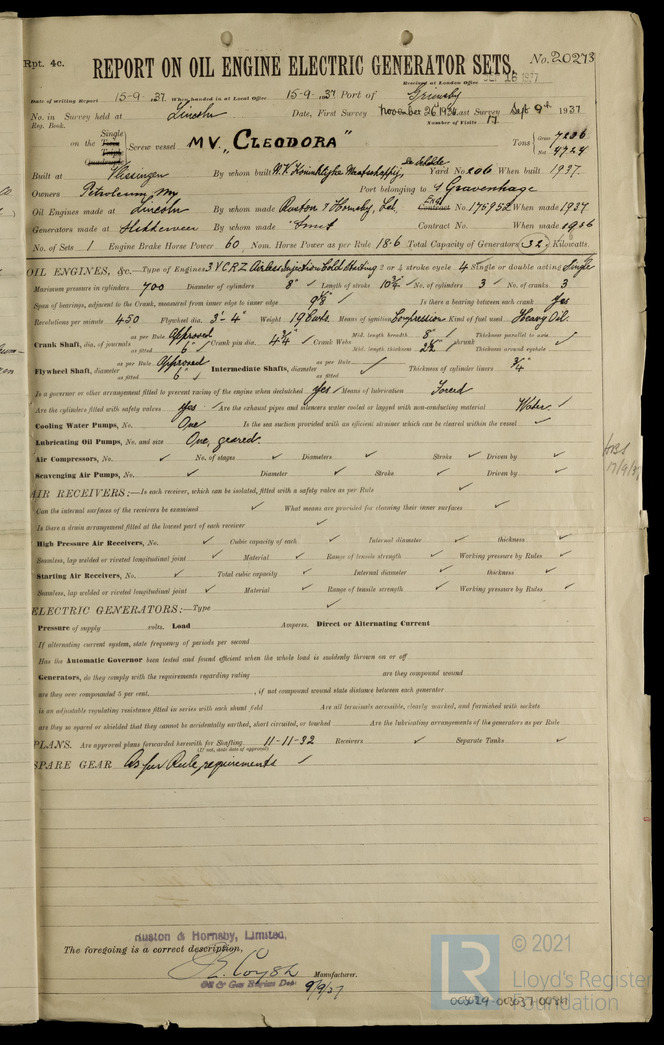 Rpt. 4c.
REPORT ON OIL ENGINE ELECTRIC GENERATOR SETS.
No. 20273
Received at London Office SEP 16 1937
Date of writing Report 15-9-.37 When handed in at Local Office 15-9-.37 Port of Grimsby
No. in Survey held at Lincoln Date, First Survey November 26 1936 Last Survey Sept 9th 1937
Reg. Book. Number of Visits 17
Single
on the Twin Screw vessel MV "CLEODORA" Tons Gross 7236
Triple
Quadruple
Net 4724
Built at Vlissingen By whom built N.V. Koninklijke Maatschappij, De Schelde Yard No. 206 When built 1937.
Owners Petroleum My Port belonging to 's Gravenhage
Oil Engines made at Lincoln By whom made Ruston & Hornsby, Ltd. Eng. Contract No. 175952 When made 1937
Generators made at By whom made Contract No. When made 1936
No. of Sets 1 Engine Brake Horse Power 60 Nom. Horse Power as per Rule 18.6 Total Capacity of Generators 32 Kilowatts.
OIL ENGINES, &c.—Type of Engines 3 VCRZ Airless Injection Cold Starting 2 or 4 stroke cycle 4 Single or double acting Single
Maximum pressure in cylinders 700 Diameter of cylinders 8" Length of stroke 10 3/4" No. of cylinders 3 No. of cranks 3
Span of bearings, adjacent to the Crank, measured from inner edge to inner edge Is there a bearing between each crank Yes
Revolutions per minute 450 Flywheel dia. 3'-4" Weight 19 Cwts. Means of ignition Compression Kind of fuel used Heavy Oil.
Crank Shaft, dia. of journals as per Rule Approved as fitted 6" Crank pin dia. 4 3/4" Crank Webs Mid. length breadth 8" Mid. length thickness shrunk Thickness parallel to axis ✓ Thickness around eyehole
Flywheel Shaft, diameter as per Rule Approved as fitted 6" Intermediate Shafts, diameter as per Rule as fitted ✓ Thickness of cylinder liners 3/4"
Is a governor or other arrangement fitted to prevent racing of the engine when declutched Yes Means of lubrication Forced
Are the cylinders fitted with safety valves Yes Are the exhaust pipes and silencers water cooled or lagged with non-conducting material Water.
Cooling Water Pumps, No. One Is the sea suction provided with an efficient strainer which can be cleared within the vessel ✓
Lubricating Oil Pumps, No. and size One, geared.
Air Compressors, No. ✓ No. of stages ✓ Diameters ✓ Stroke ✓ Driven by ✓
Scavenging Air Pumps, No. ✓ Diameter ✓ Stroke ✓ Driven by ✓
AIR RECEIVERS:—Is each receiver, which can be isolated, fitted with a safety valve as per Rule ✓
Can the internal surfaces of the receivers be examined ✓ What means are provided for cleaning their inner surfaces ✓
Is there a drain arrangement fitted at the lowest part of each receiver ✓
High Pressure Air Receivers, No. ✓ Cubic capacity of each ✓ Internal diameter ✓ thickness ✓
Seamless, lap welded or riveted longitudinal joint ✓ Material ✓ Range of tensile strength ✓ Working pressure by Rules ✓
Starting Air Receivers, No. ✓ Total cubic capacity ✓ Internal diameter ✓ thickness ✓
Seamless, lap welded or riveted longitudinal joint ✓ Material ✓ Range of tensile strength ✓ Working pressure by Rules ✓
ELECTRIC GENERATORS:—Type ✓
Pressure of supply volts. Load Amperes. Direct or Alternating Current
If alternating current system, state frequency of periods per second
Has the Automatic Governor been tested and found efficient when the whole load is suddenly thrown on or off
Generators, do they comply with the requirements regarding rating are they compound wound
are they over compounded 5 per cent. , if not compound wound state distance between each generator
is an adjustable regulating resistance fitted in series with each shunt field Are all terminals accessible, clearly marked, and furnished with sockets
are they so spaced or shielded that they cannot be accidentally earthed, short circuited, or touched Are the lubricating arrangements of the generators as per Rule
PLANS. Are approved plans forwarded herewith for Shafting 11-11-32 Receivers ✓ Separate Tanks ✓
(If not, state date of approval)
SPARE GEAR As per Rule requirements
17/9/37
Ruston & Hornsby, Limited.
The foregoing is a correct description,
Manufacturer.
Oil & Gas Engine Dept
9/9/37
LR © 2021
Lloyd's Register
Foundation
003629-003637-0084